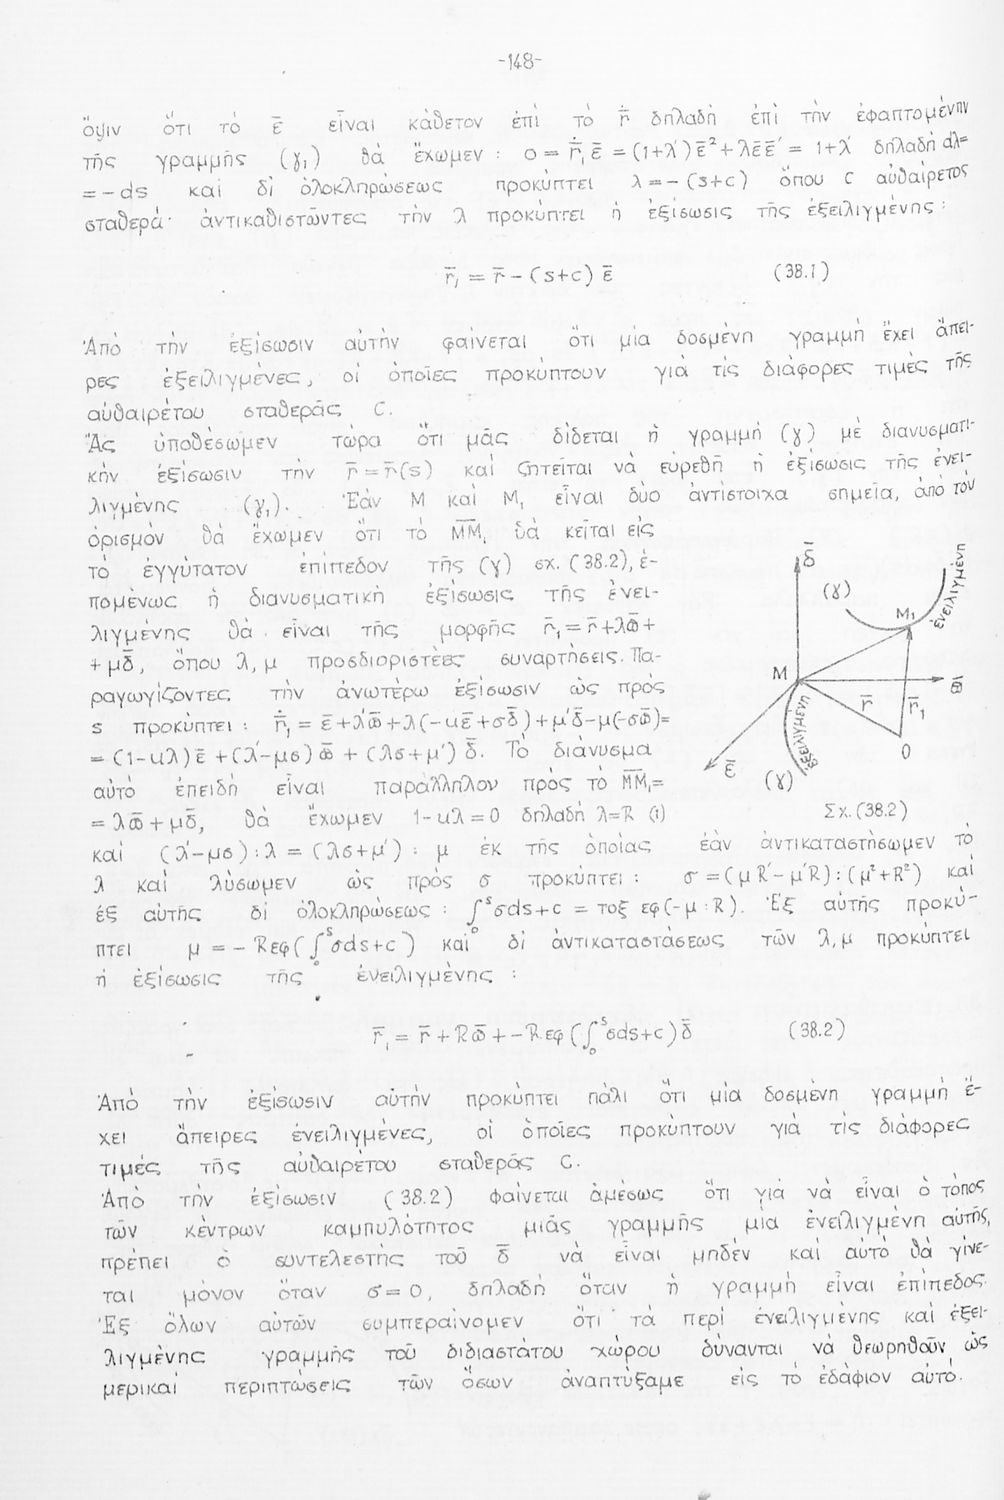 -148-
ὄψιν ὅτι τό ε̄ εἶναι κάθετον ἐπί τό ṙ̄ δηλαδή ἐπί τήν ἐφαπτομένην
τῆς γραμμῆς (γ₁) θά ἔχωμεν : 0 = ṙ̄₁ ε̄ = (1+λ′) ε̄² + λ ε̄ ε̄′ = 1+λ′ δηλαδή dλ=
= -ds καί δι' ὁλοκληρώσεως προκύπτει λ = -(s+c) ὅπου c αὐθαίρετος
σταθερά· ἀντικαθιστῶντες τήν λ προκύπτει ἡ ἐξίσωσις τῆς ἐξειλιγμένης :
r̄₁ = r̄ - (s+c) ε̄ (38.1)
Ἀπό τήν ἐξίσωσιν αὐτήν φαίνεται ὅτι μία δοσμένη γραμμή ἔχει ἄπει-
ρες ἐξειλιγμένες, οἱ ὁποῖες προκύπτουν γιά τίς διάφορες τιμές τῆς
αὐθαιρέτου σταθερᾶς C.
Ἄς ὑποθέσωμεν τώρα ὅτι μᾶς δίδεται ἡ γραμμή (γ) μέ διανυσματι-
κήν ἐξίσωσιν τήν r̄ = r̄(s) καί ζητεῖται νά εὑρεθῆ ἡ ἐξίσωσις τῆς ἐνει-
λιγμένης (γ₁). Ἐάν M καί M₁ εἶναι δύο ἀντίστοιχα σημεῖα, ἀπό τόν
ὁρισμόν θά ἔχωμεν ὅτι τό M̄M̄₁ θά κεῖται εἰς
τό ἐγγύτατον ἐπίπεδον τῆς (γ) σχ. (38.2), ἑ-
πομένως ἡ διανυσματική ἐξίσωσις τῆς ἐνει-
λιγμένης θά εἶναι τῆς μορφῆς r̄₁ = r̄ + λω̄ +
+ μδ̄, ὅπου λ, μ προσδιοριστέες συναρτήσεις. Πα-
ραγωγίζοντες τήν ἀνωτέρω ἐξίσωσιν ὡς πρός
s προκύπτει : ṙ̄₁ = ε̄ + λ′ω̄ + λ(-κε̄ + σδ̄) + μ′δ̄ - μ(-σω̄) =
= (1-κλ) ε̄ + (λ′-μσ) ω̄ + (λσ+μ′) δ̄. Τό διάνυσμα
αὐτό ἐπειδή εἶναι παράλληλον πρός τό M̄M̄₁ =
= λω̄ + μδ̄, θά ἔχωμεν 1-κλ = 0 δηλαδή λ=R (i)
καί (λ′-μσ) : λ = (λσ+μ′) : μ ἐκ τῆς ὁποίας ἐάν ἀντικαταστήσωμεν τό
λ καί λύσωμεν ὡς πρός σ προκύπτει : σ = (μR′ - μ′R) : (μ²+R²) καί
ἐξ αὐτῆς δι' ὁλοκληρώσεως : ∫₀ˢ σds + c = τοξ εφ(-μ : R). Ἐξ αὐτῆς προκύ-
πτει μ = - R εφ(∫₀ˢ σds+c) καί δι' ἀντικαταστάσεως τῶν λ, μ προκύπτει
ἡ ἐξίσωσις τῆς ἐνειλιγμένης :
r̄₁ = r̄ + Rω̄ + - R εφ (∫₀ˢ σds+c) δ̄ (38.2)
Ἀπό τήν ἐξίσωσιν αὐτήν προκύπτει πάλι ὅτι μία δοσμένη γραμμή ἔ-
χει ἄπειρες ἐνειλιγμένες, οἱ ὁποῖες προκύπτουν γιά τίς διάφορες
τιμές τῆς αὐθαιρέτου σταθερᾶς C.
Ἀπό τήν ἐξίσωσιν (38.2) φαίνεται ἀμέσως ὅτι γιά νά εἶναι ὁ τόπος
τῶν κέντρων καμπυλότητος μιᾶς γραμμῆς μία ἐνειλιγμένη αὐτῆς,
πρέπει ὁ συντελεστής τοῦ δ̄ νά εἶναι μηδέν καί αὐτό θά γίνε-
ται μόνον ὅταν σ = 0, δηλαδή ὅταν ἡ γραμμή εἶναι ἐπίπεδος.
Ἐξ ὅλων αὐτῶν συμπεραίνομεν ὅτι τά περί ἐνειλιγμένης καί ἐξει-
λιγμένης γραμμῆς τοῦ διδιαστάτου χώρου δύνανται νά θεωρηθοῦν ὡς
μερικαί περιπτώσεις τῶν ὅσων ἀναπτύξαμε εἰς τό ἐδάφιον αὐτό.
δ̄
(γ)
ἐνειλιγμένη
M₁
M
ω̄
r̄
r̄₁
O
ἐξειλιγμένη
ε̄
(γ)
Σχ.(38.2)